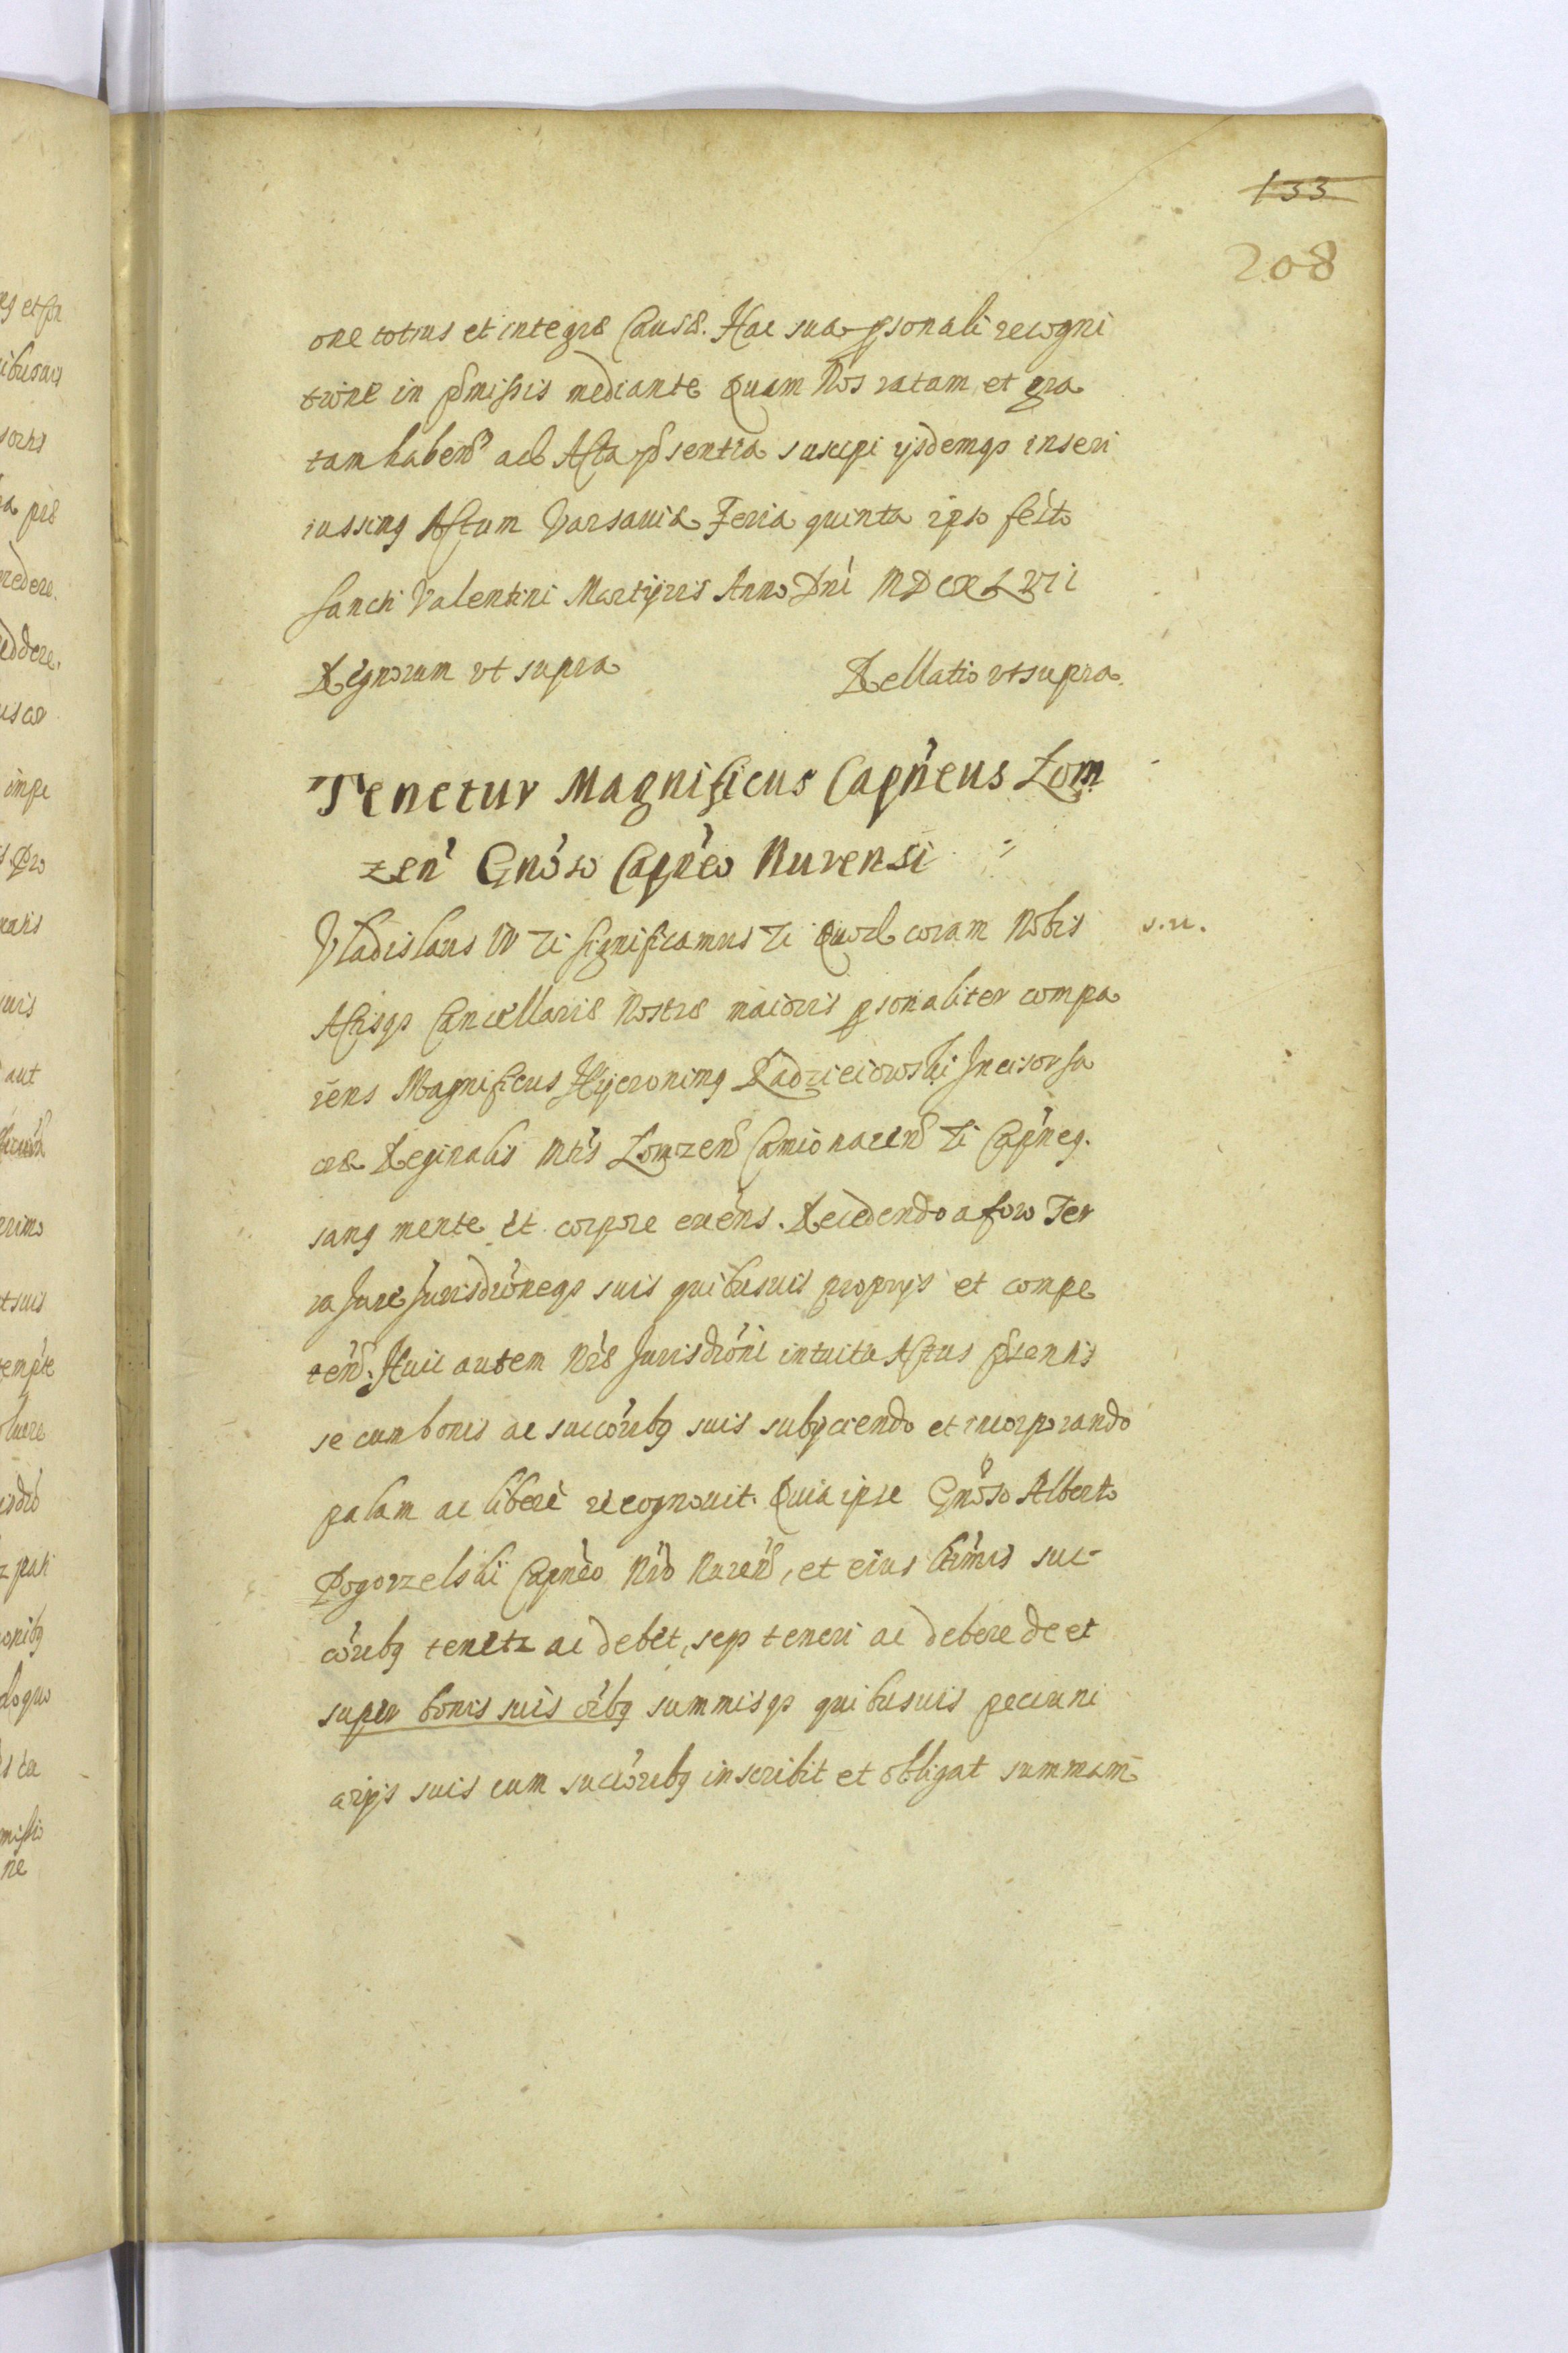 133
208
one totius et integræ Causæ. Hac sua psonali recogni
tione in pmissis mediante Quam Nos ratam et gra
tam habend ad Acta psentia suscipi ijsdemq3 inseri
iussimq Actum Varsaviæ Feria quinta ipso festo
Sancti Valentini Martijris Anno Dni MDCXLVII
Regnorum vt supra Rellatio vt supra.
Tenetur Magnificus Capneus Lom
zen Gnoso Capneo Nurensi
Vladislaus IV Zi significamus Zi Quod coram Nobis s.n.
Actisq3 Cancellariæ Nostræ maioris psonaliter compa
rens Magnificus Hijeronimq Radzieiowski Incisor Sa
cræ Reginalis Mtis Lomzen Camionacen Zi Capneq.
sanq mente et corpore exens. Recedendo a foro Ter
ra Jure Jurisdioneq3 suis quibusuis proprijs et compe
ten. Huic autem Nræ Jurisdioni intuitu Actus psentis
se cum bonis ac succoribq suis subijciendo et incorporando
palam ac libere recognovit. Quia ipse Gnoso Alberto
Pogorzelskii Capneo Nro Nuren, et eius ltimis suc-
coribq tenetz ac debet, seq3 teneri ac debere de et
super bonis suis oibq summisq3 quibusuis pecuni
arijs suis cum succoribq inscribit et obligat summam